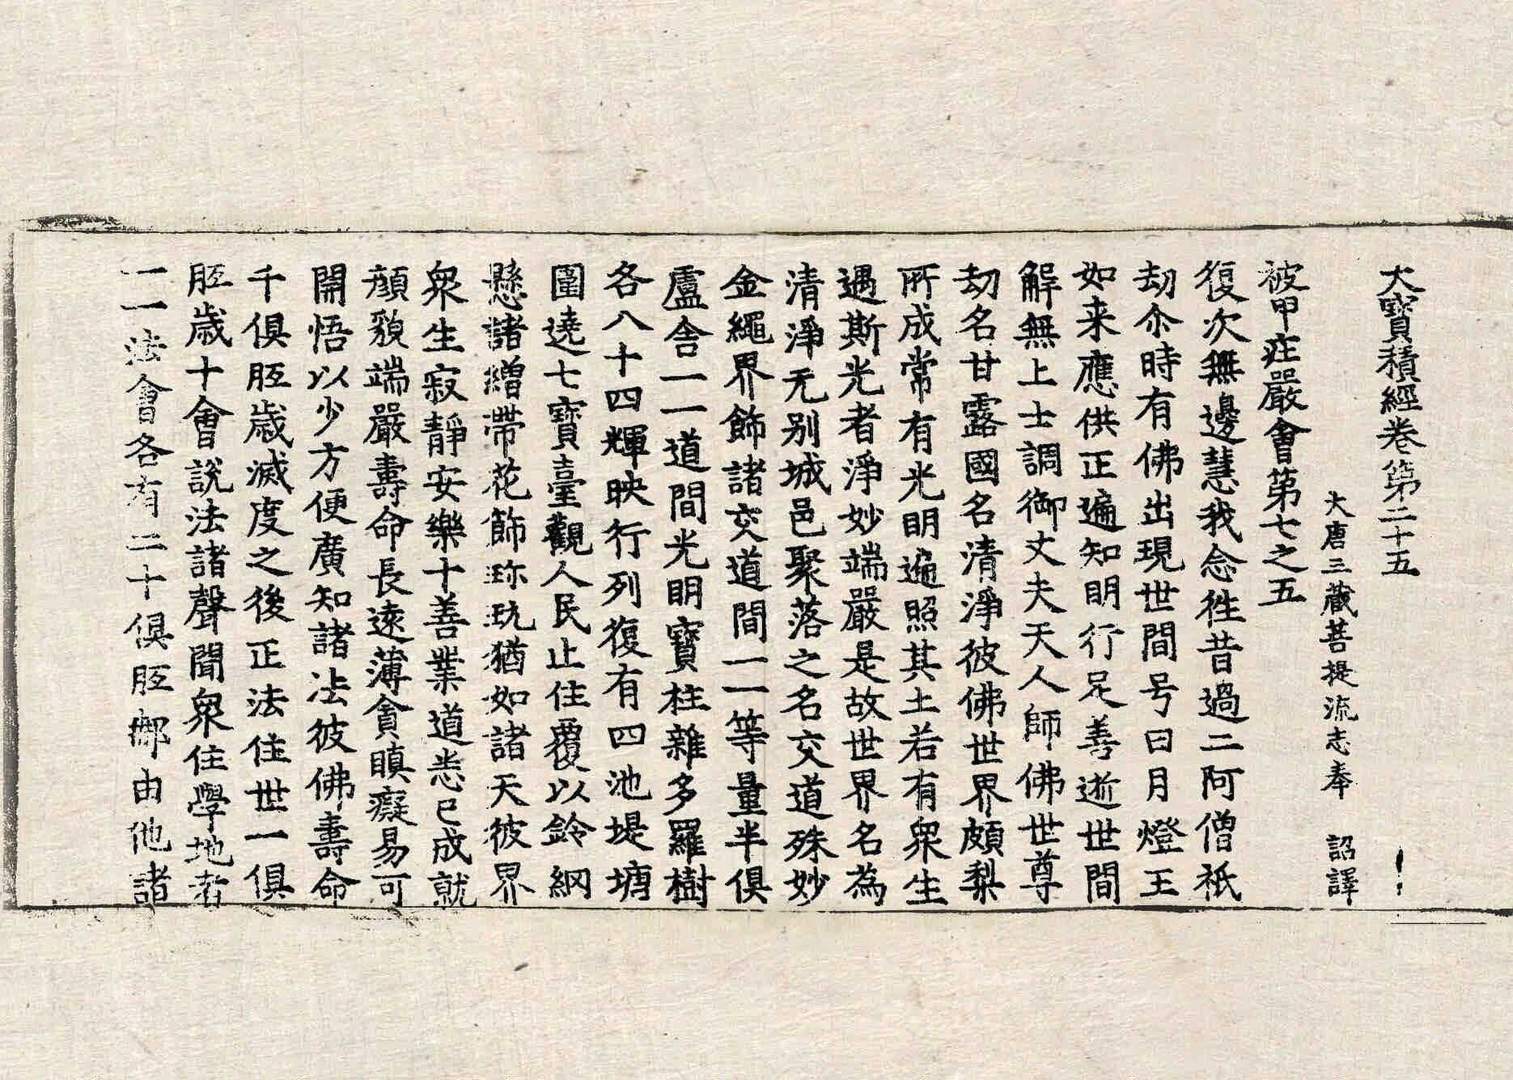 大寶積經卷第二十五
大唐三藏菩提流志奉 詔譯
被甲庄嚴會第七之五
復次無邊慧我念徃昔過二阿僧祇
劫尒時有佛出現世間号曰月燈王
如来應供正遍知明行足善逝世間
解無上士調御丈夫天人師佛世尊
劫名甘露國名清淨彼佛世界頗梨
所成常有光明遍照其土若有衆生
遇斯光者淨妙端嚴是故世界名為
清淨无别城邑聚落之名交道殊妙
金繩界飾諸交道間一一等量半俱
盧舍一一道間光明寶柱雜多羅樹
各八十四輝映行列復有四池堤塘
圍遶七寶臺觀人民止住覆以鈴網
懸諸繒帶花飾珎玩猶如諸天彼界
衆生寂靜安樂十善業道悉已成就
顔貌端嚴壽命長遠薄貪瞋癡易可
開悟以少方便廣知諸法彼佛壽命
千俱胝歲滅度之後正法住世一俱
胝歲十會說法諸聲聞衆住學地者
一一法會各有二十俱胝郍由他諸